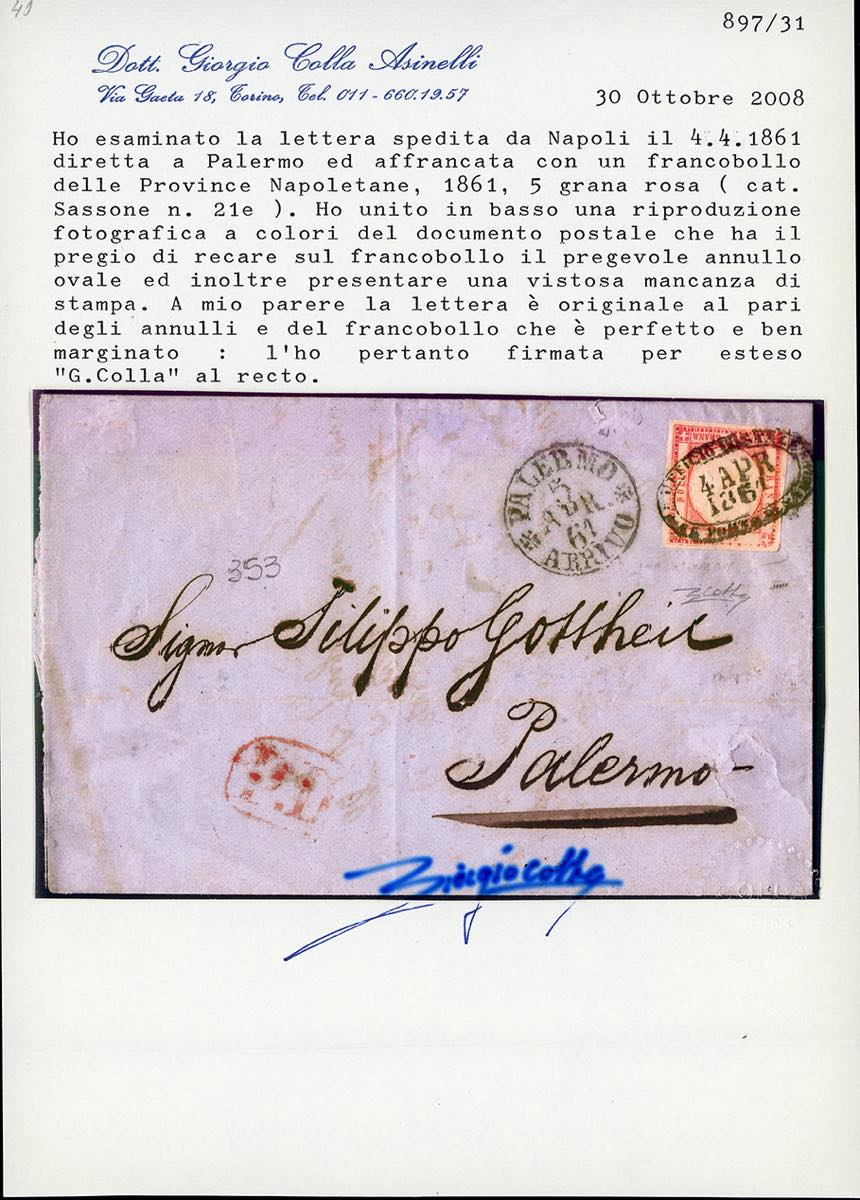 49
897/31
Dott. Giorgio Colla Asinelli
Via Gaeta 18, Torino, Tel. 011 - 660.19.57
30 Ottobre 2008
Ho esaminato la lettera spedita da Napoli il 4.4.1861
diretta a Palermo ed affrancata con un francobollo
delle Province Napoletane, 1861, 5 grana rosa ( cat.
Sassone n. 21e ). Ho unito in basso una riproduzione
fotografica a colori del documento postale che ha il
pregio di recare sul francobollo il pregevole annullo
ovale ed inoltre presentare una vistosa mancanza di
stampa. A mio parere la lettera è originale al pari
degli annulli e del francobollo che è perfetto e ben
marginato : l'ho pertanto firmata per esteso
"G.Colla" al recto.
PALERMO
5
APR.
61
ARRIVO
4 APR
1861
353
Signor Filippo Gottheil
Palermo
Giorgio Colla
COLLA
TORINO